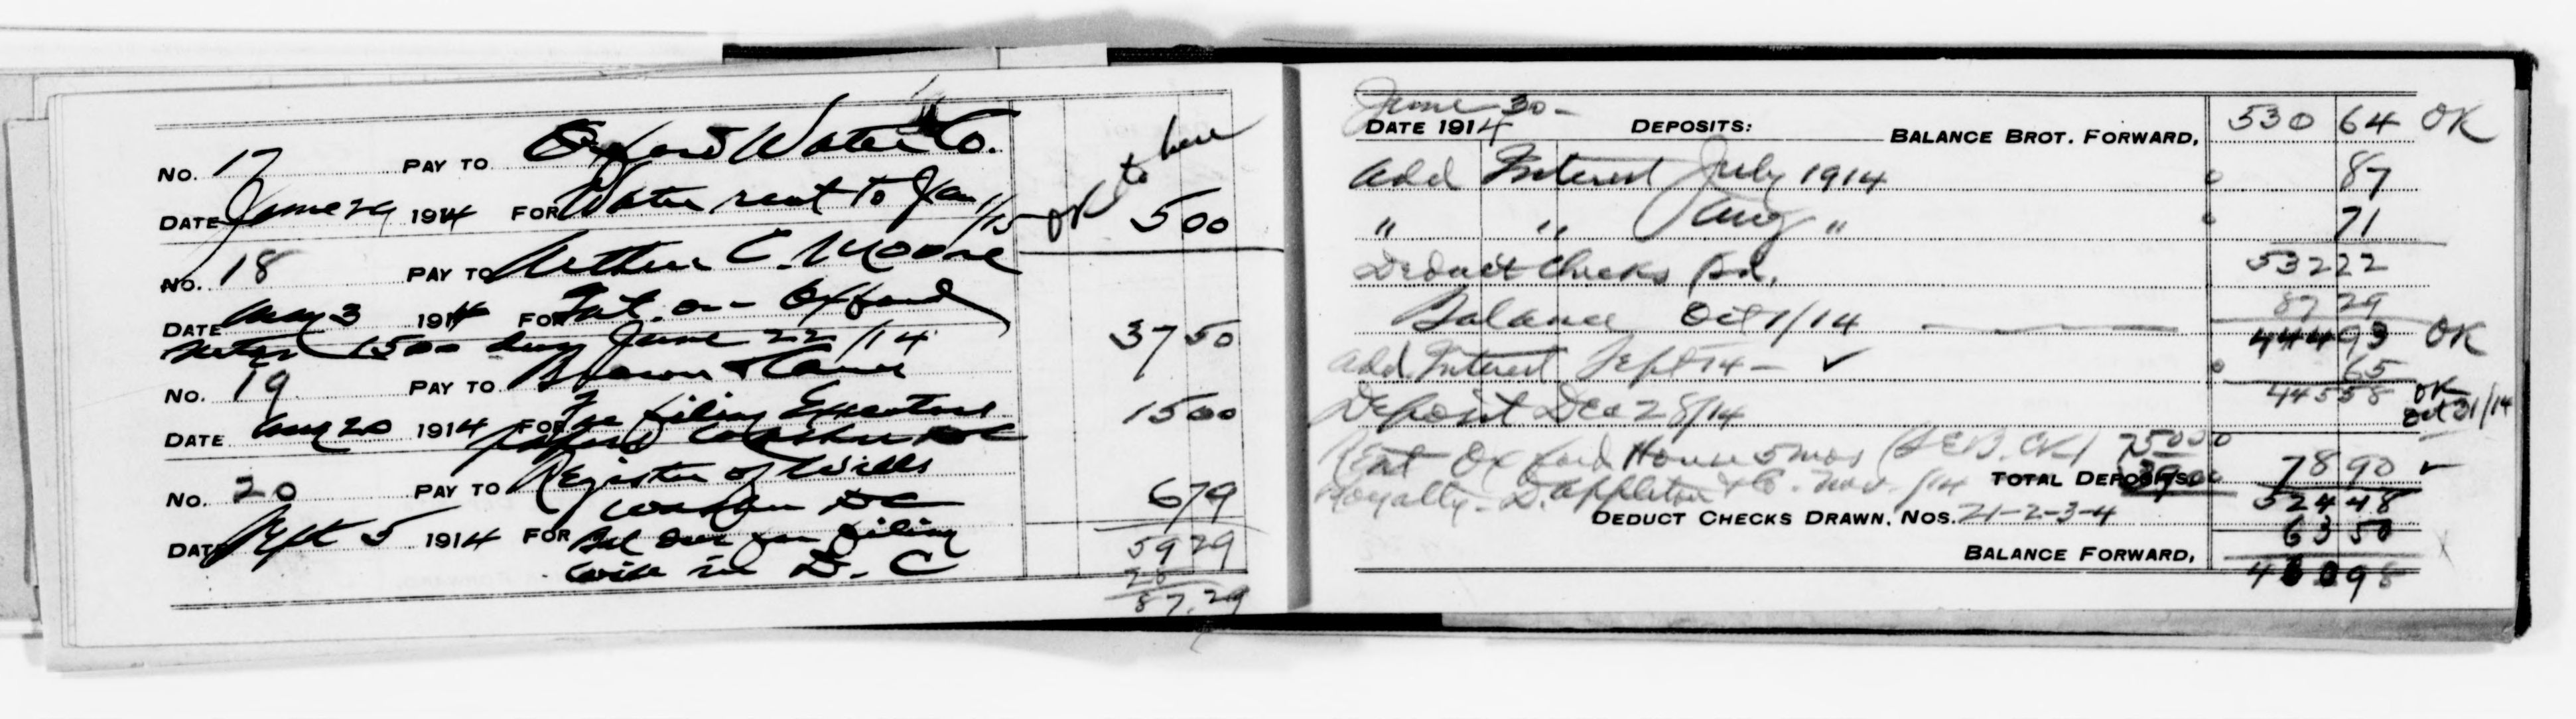 No. 17 PAY TO Oxford Water Co.
DATE June 29 1914 FOR Water rent to Jan 1/15 OK to here 5 00
No. 18 PAY TO Arthur C. Moore
DATE Aug 3 1914 FOR Int. on Oxford 37 50
notes 1500 due June 22/14
No. 19 PAY TO Brown &
DATE Aug 20 1914 FOR Fee filing Executors 15 00
No. 20 PAY TO Register of Wills
DC 6 79
DATE Sept 5 1914 FOR Bal due for filing
will in D. C
59 29
87.29
June 30 -
DATE 1914 DEPOSITS: BALANCE BROT. FORWARD, 530 64 OK
Add Interest July 1914 87
" " Aug " 71
532 22
Deduct Checks 87 29
Balance Oct 1/14 444 93 OK
Add Interest Sept 14 - ✓ 65
445 58 OK
Oct 21/14
Deposit Dec 28/14
Rent Oxford House 5 mos
Royalty - D. Appleton & Co. Nov. /14 TOTAL DEPOSITS 78 90 ✓
524 48
DEDUCT CHECKS DRAWN, NOS. 21-2-3-4 63 50
BALANCE FORWARD, 98